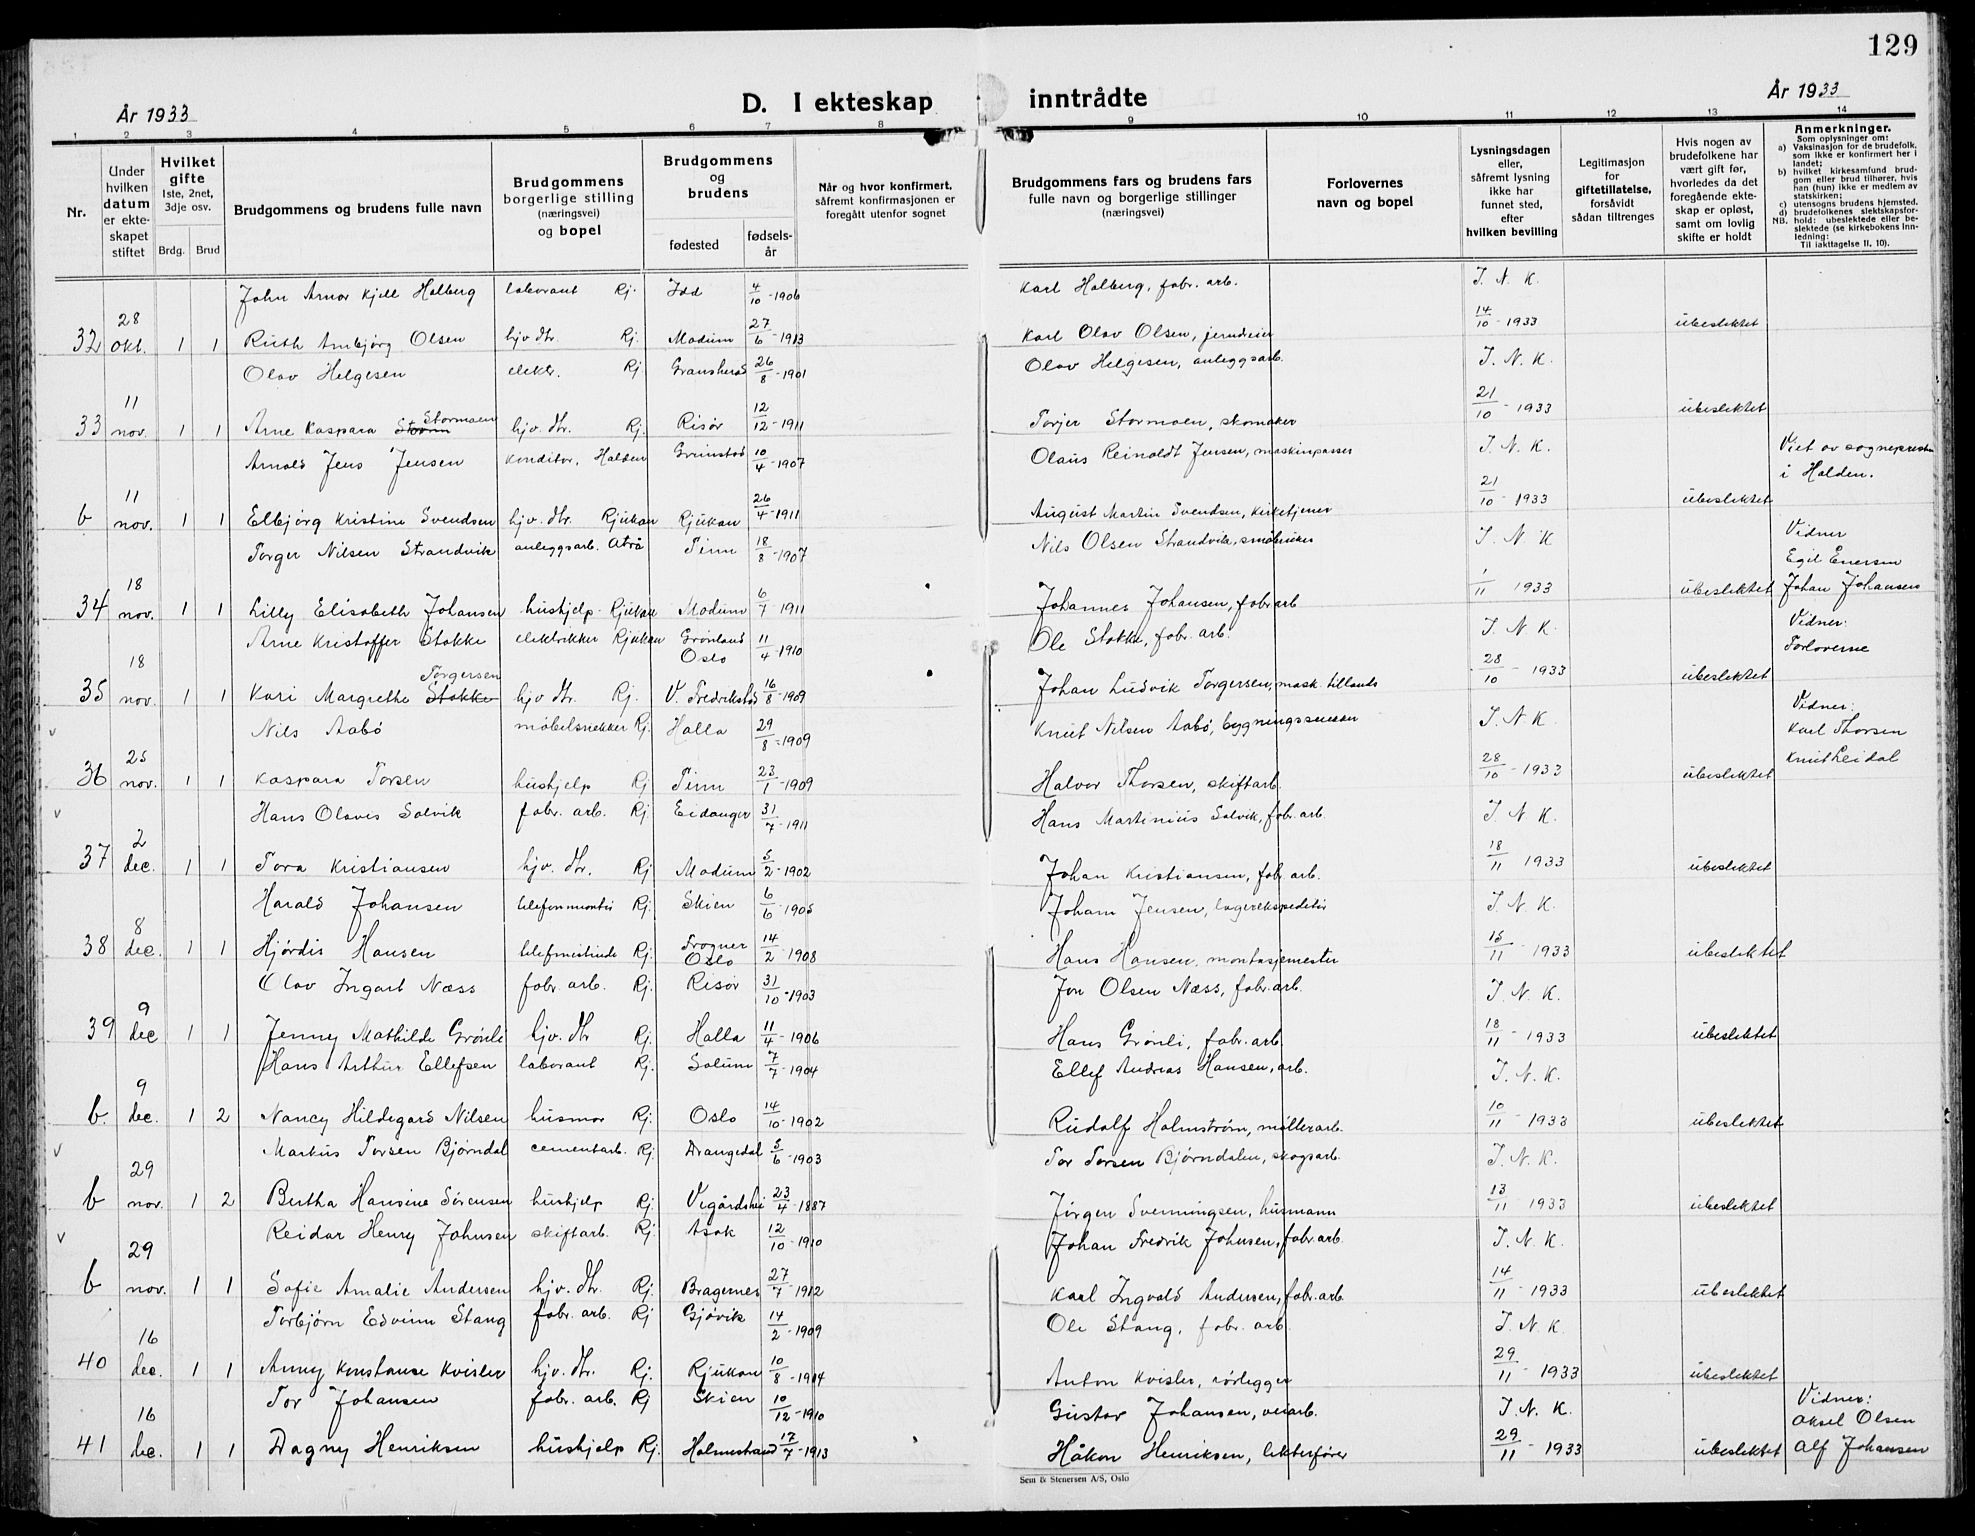 129
År 1933
D. I ekteskap inntrådte
År 1933
1 2 3 4 5 6 7 8 9 10 11 12 13 14
Nr.
Under hvilken datum er ekteskapet stiftet
Hvilket gifte
1ste, 2net, 3dje osv.
Brdg. Brud
Brudgommens og brudens fulle navn
Brudgommens borgerlige stilling (næringsvei) og bopel
Brudgommens og brudens
fødested
fødselsår
Når og hvor konfirmert, såfremt konfirmasjonen er foregått utenfor sognet
Brudgommens fars og brudens fars fulle navn og borgerlige stillinger (næringsvei)
Forlovernes navn og bopel
Lysningsdagen eller, såfremt lysning ikke har funnet sted, efter hvilken bevilling
Legitimasjon for giftetillatelse, forsåvidt sådan tiltrenges
Hvis nogen av brudefolkene har vært gift før, hvorledes da det foregående ekteskap er opløst, samt om lovlig skifte er holdt
Anmerkninger.
Som oplysninger om:
a) Vaksinasjon for de brudefolk, som ikke er konfirmert her i landet;
b) hvilket kirkesamfund brudgom eller brud tilhører, hvis han (hun) ikke er medlem av statskirken;
c) utensogns brudens hjemsted.
d) brudefolkenes slektskapsforhold: ubeslektede eller beslektede (se kirkebokens innledning:
NB. Til iakttagelse II, 10).
John Arnor Kjell Holberg laborant Rj. Idd 4/10-1906 Karl Holberg, fabr. arb. I. N. K.
32 28 okt. 1 1 Ruth Ambjørg Olsen hjv. dtr. Rj. Modum 27/6-1913 Karl Olav Olsen, 14/10-1933 ubeslektet
Olav Helgesen elektr. Rj. Gransherad 26/8-1901 Olav Helgesen, anleggsarb. I. N. K.
33 11 nov. 1 1 Arne Kaspara Stormoen hjv. dtr. Rj. Risør 12/12-1911 Torjer Stormoen, skomaker 21/10-1933 ubeslektet
Arnold Jens Jensen konditor, Halden Grimstad 10/4-1907 Olaus Reinoldt Jensen, maskinpasser I. N. K. Viet av sognepresten i Halden.
b 11 nov. 1 1 Elbjørg Kristine Svendsen hjv. dtr. Rjukan Rjukan 26/4-1911 August Martin Svendsen, kirketjener 21/10-1933 ubeslektet
Torger Nilsen Strandvik anleggsarb. Atrå Tinn 18/8-1907 Nils Olsen Strandvik, småbruker I. N. K Vidner Egil Enersen
34 18 nov. 1 1 Lilly Elisabeth Johansen hushjelp Rjukan Modum 6/7 1911 Johannes Johansen, fabr arb 1/11 1933 ubeslektet Johan Johansen
Arne Kristoffer Stokke elektrikker Rjukan Grønland Oslo 11/4-1910 Ole Stokke, fabr. arb. I. N. K. Vidner: Forloverne
35 18 nov. 1 1 Kari Margrethe Stokke Torgersen hjv dtr. Rj. V. Fredrikstad 16/8-1909 Johan Ludvik Torgersen, mask. tillands 28/10-1933 ubeslektet
Nils Aabø møbelsnekker Rj. Halla 29/8-1909 Knut Nilsen Aabø, bygningssnekker I. N. K. Vidner: Karl Thorsen
36 25 nov. 1 1 Kaspara Torsen hushjelp Rj Tinn 23/1-1909 Halvor Thorsen, skiftarb. 28/10-1933 ubeslektet Knut Leidal
Hans Olavis Solvik fabr. arb. Rj Eidanger 31/7-1911 Hans Martinius Solvik, fabr. arb. I. N. K.
37 2 dec. 1 1 Tora Kristiansen hjv. dtr. Rj Modum 5/2-1902 Johan Kristiansen, fabr. arb. 18/11 1933 ubeslektet
Harald Johansen telefonmontør Rj. Skien 6/6-1905 Johann Jensen, lagerekspeditør I. N. K.
38 8 dec. 1 1 Hjørdis Hansen Rj. Frogner Oslo 14/2-1908 Hans Hansen, montasjemester 15/11-1933 ubeslektet
Olav Ingart Næss fabr. arb. Rj. Risør 31/10-1903 Jon Olsen Næss, fabr. arb. I. N. K.
39 9 dec 1 1 Jenny Mathilde Grønli hjv. dtr Rj. Halla 11/4-1906 Hans Grønli, fabr. arb. 18/11-1933 ubeslektet
Hans Arthur Ellefsen laborant Rj. Solum 7/7-1904 Ellef Andreas Hansen, arb. I. N. K.
b. 9 dec. 1 2 Nancy Hildegard Nilsen husmor Rj. Oslo 14/10-1902 Rudolf Holmstrøm, møllerarb. 10/11-1933 ubeslektet
Markus Torsen Bjørndal cementarb. Rj. Drangedal 5/6-1903 Tor Torsen Bjørndalen, skogsarb. I. N. K.
b 29 nov. 1 2 Bertha Hansine Sørensen hushjelp Rj. Vegårdshei 23/4-1887 Jørgen Svenningsen, husmann 13/11 1933 ubeslektet
Reidar Henry Johnsen skiftarb. Rj. Asak 12/10-1910 Johan Fredrik Johnsen, fabr. arb. I. N. K.
b 29 nov. 1 1 Sofie Amalie Andersen hjv. dtr. Rj. Bragernes 27/7-1912 Karl Ingvald Andersen, fabr. arb 14/11-1933 ubeslektet
Torbjørn Edvinn Stang fabr. arb. Rj Gjøvik 14/2-1909 Ole Stang, fabr. arb. I. N. K.
40 16 dec. 1 1 Anny Konstanse Kvisler hjv. dtr. Rj. Rjukan 10/8-1914 Anton Kvisler, rørlegger 29/11-1933 ubeslektet
Tor Johansen fabr. arb. Rj Skien 10/12-1910 Gustav Johansen, veiarb. I. N. K. Vidner: Aksel Olsen
41 16 dec. 1 1 Dagny Henriksen hushjelp Rj. Holmestrand 17/7-1913 Håkon Henriksen, lekterfører 29/11-1933 ubeslektet Alf Johansen
Sem & Stenersen A/S, Oslo